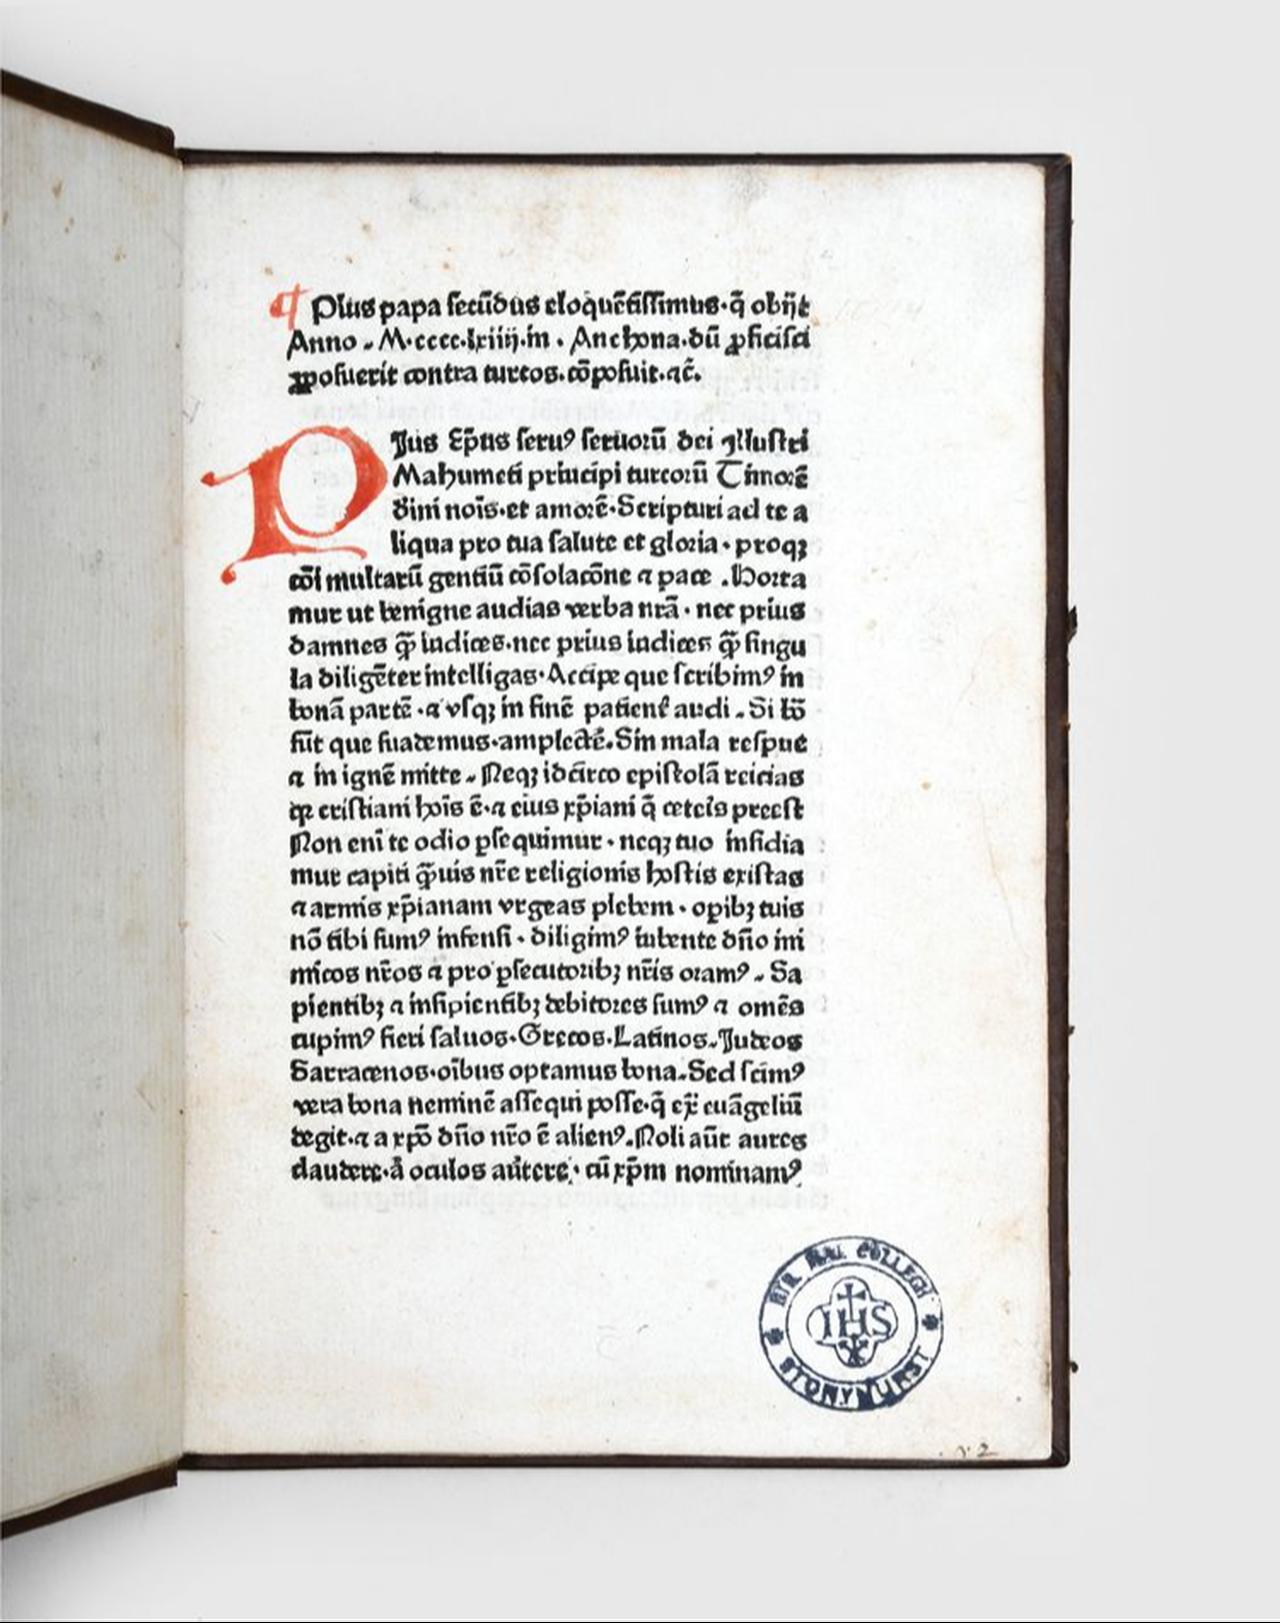 ¶ Pius papa secūdus eloquētissimus·q̄ obijt
Anno . M·cccc·lxiiij·in . Anchona·dū ꝓficisci
ꝓposuerit contra turcos·cōposuit·ꝛc̄.
PJus Ep̄us seruꝰ seruorū dei Jllustri
Mahumeti principi turcorū Timorē
diuini noīs·et amorē·Scripturi ad te a
liqua pro tua salute et gloria · proqꝫ
multarū gentiū cōsolacōne ꝛ pace . Horta
mur ut benigne audias verba nr̄ā · nec prius
damnes q̄ꝫ iudices·nec prius iudices q̄ꝫ singu
la diligēter intelligas·Accipe que scribimꝰ in
bonā partē ·ꝛ vsqꝫ in finē patient̄ audi . Si bō
sūt que suademus·amplectē.Sin mala respue
ꝛ in ignē mitte . Neqꝫ idcirco epistolā reicias
qꝛ cristiani hoīs ē·ꝛ eius xp̄iani q̄ ceteris preest
Non eni te odio ꝑsequimur · neqꝫ tuo insidia
mur capiti q̄ꝫuis nr̄e religionis hostis existas
ꝛ armis xp̄ianam vrgeas plebem · opibꝫ tuis
nō tibi sumꝰ infensi · diligimꝰ iubente dn̄o ini
micos nr̄os ꝛ pro ꝑsecutoribꝫ nr̄is oramꝰ . Sa
pientibꝫ ꝛ insipientibꝫ debitores sumꝰ ꝛ omēs
cupimꝰ fieri saluos·Grecos·Latinos.Judeos
Sarracenos·oībus optamus bona.Sed scimꝰ
vera bona neminē assequi posse·q̄ ex̄ euāgeliū
degit·ꝛ a xp̄o dn̄o nr̄o ē alienꝰ.Noli aūt aures
claudere·aut̄ oculos auertere · cū xp̄m nominamꝰ
COLLEGII
IHS
STONYHURST
2